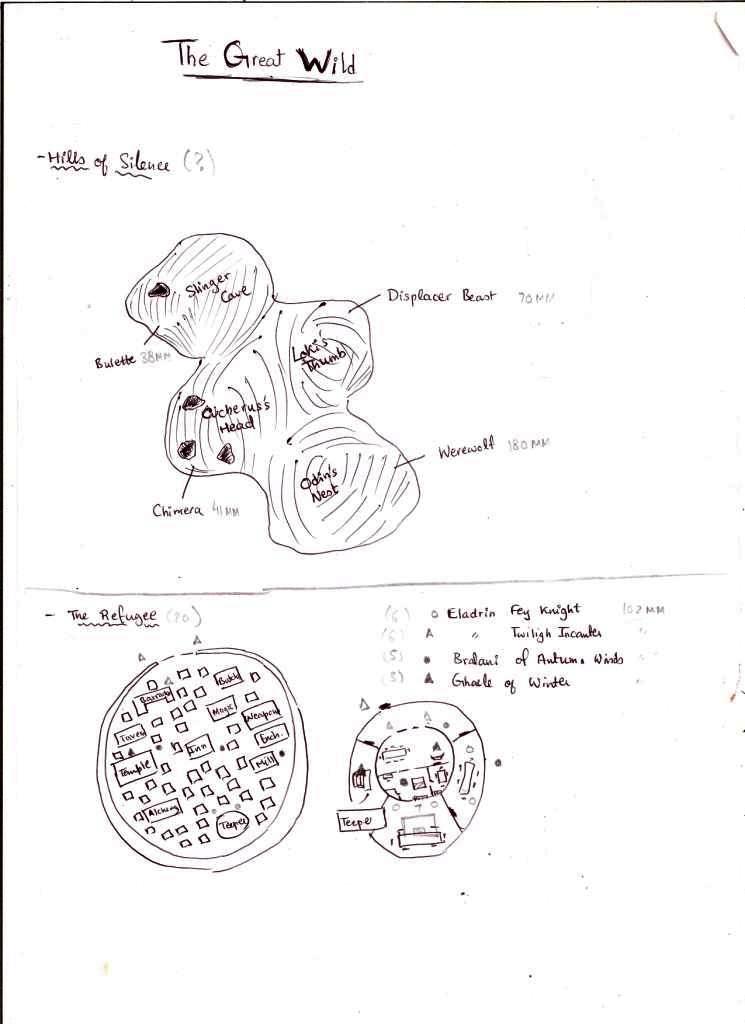 The Great Wild
- Hills of Silence (?)
Slinger
Cave
Displacer Beast 70MM
Bulette 38MM
Loki's
Thumb
Head
Werewolf 180MM
Odin's
Nest
Chimera 41MM
- The Refugee (20)
(6) Eladrin Fey Knight 102MM
(6) " Twiligh Incanter "
(5) Bralani of Autumn Winds "
(3) Ghaele of Winter "
Butch
Magic
Weapon
Tavern
Ench.
Inn
Temple
Mill
Alchemy
Teeper
Teeper